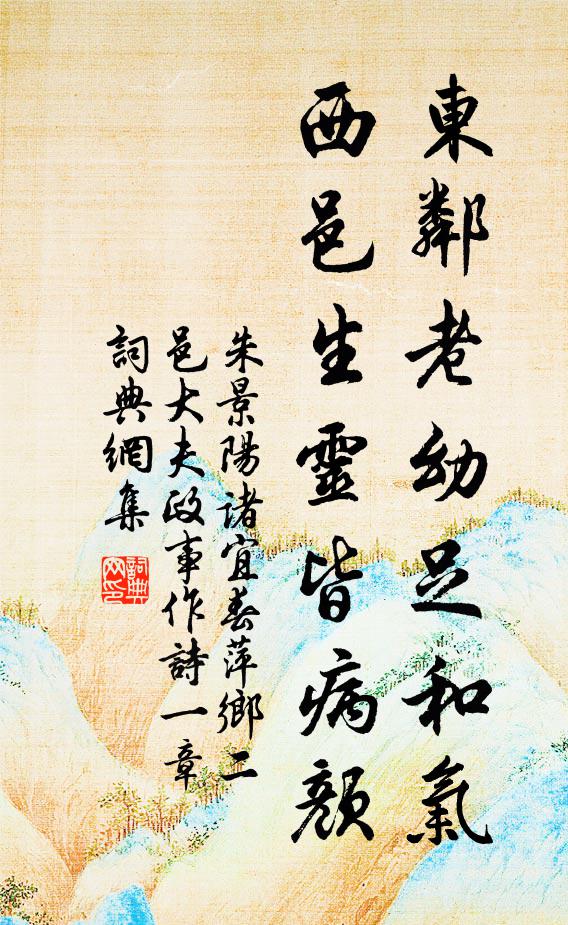 東鄰老幼足和氣
西邑生靈皆病顏
朱景陽諸宜春萍鄉二
邑大夫政事作詩一章
詞典網集
詞典
网印